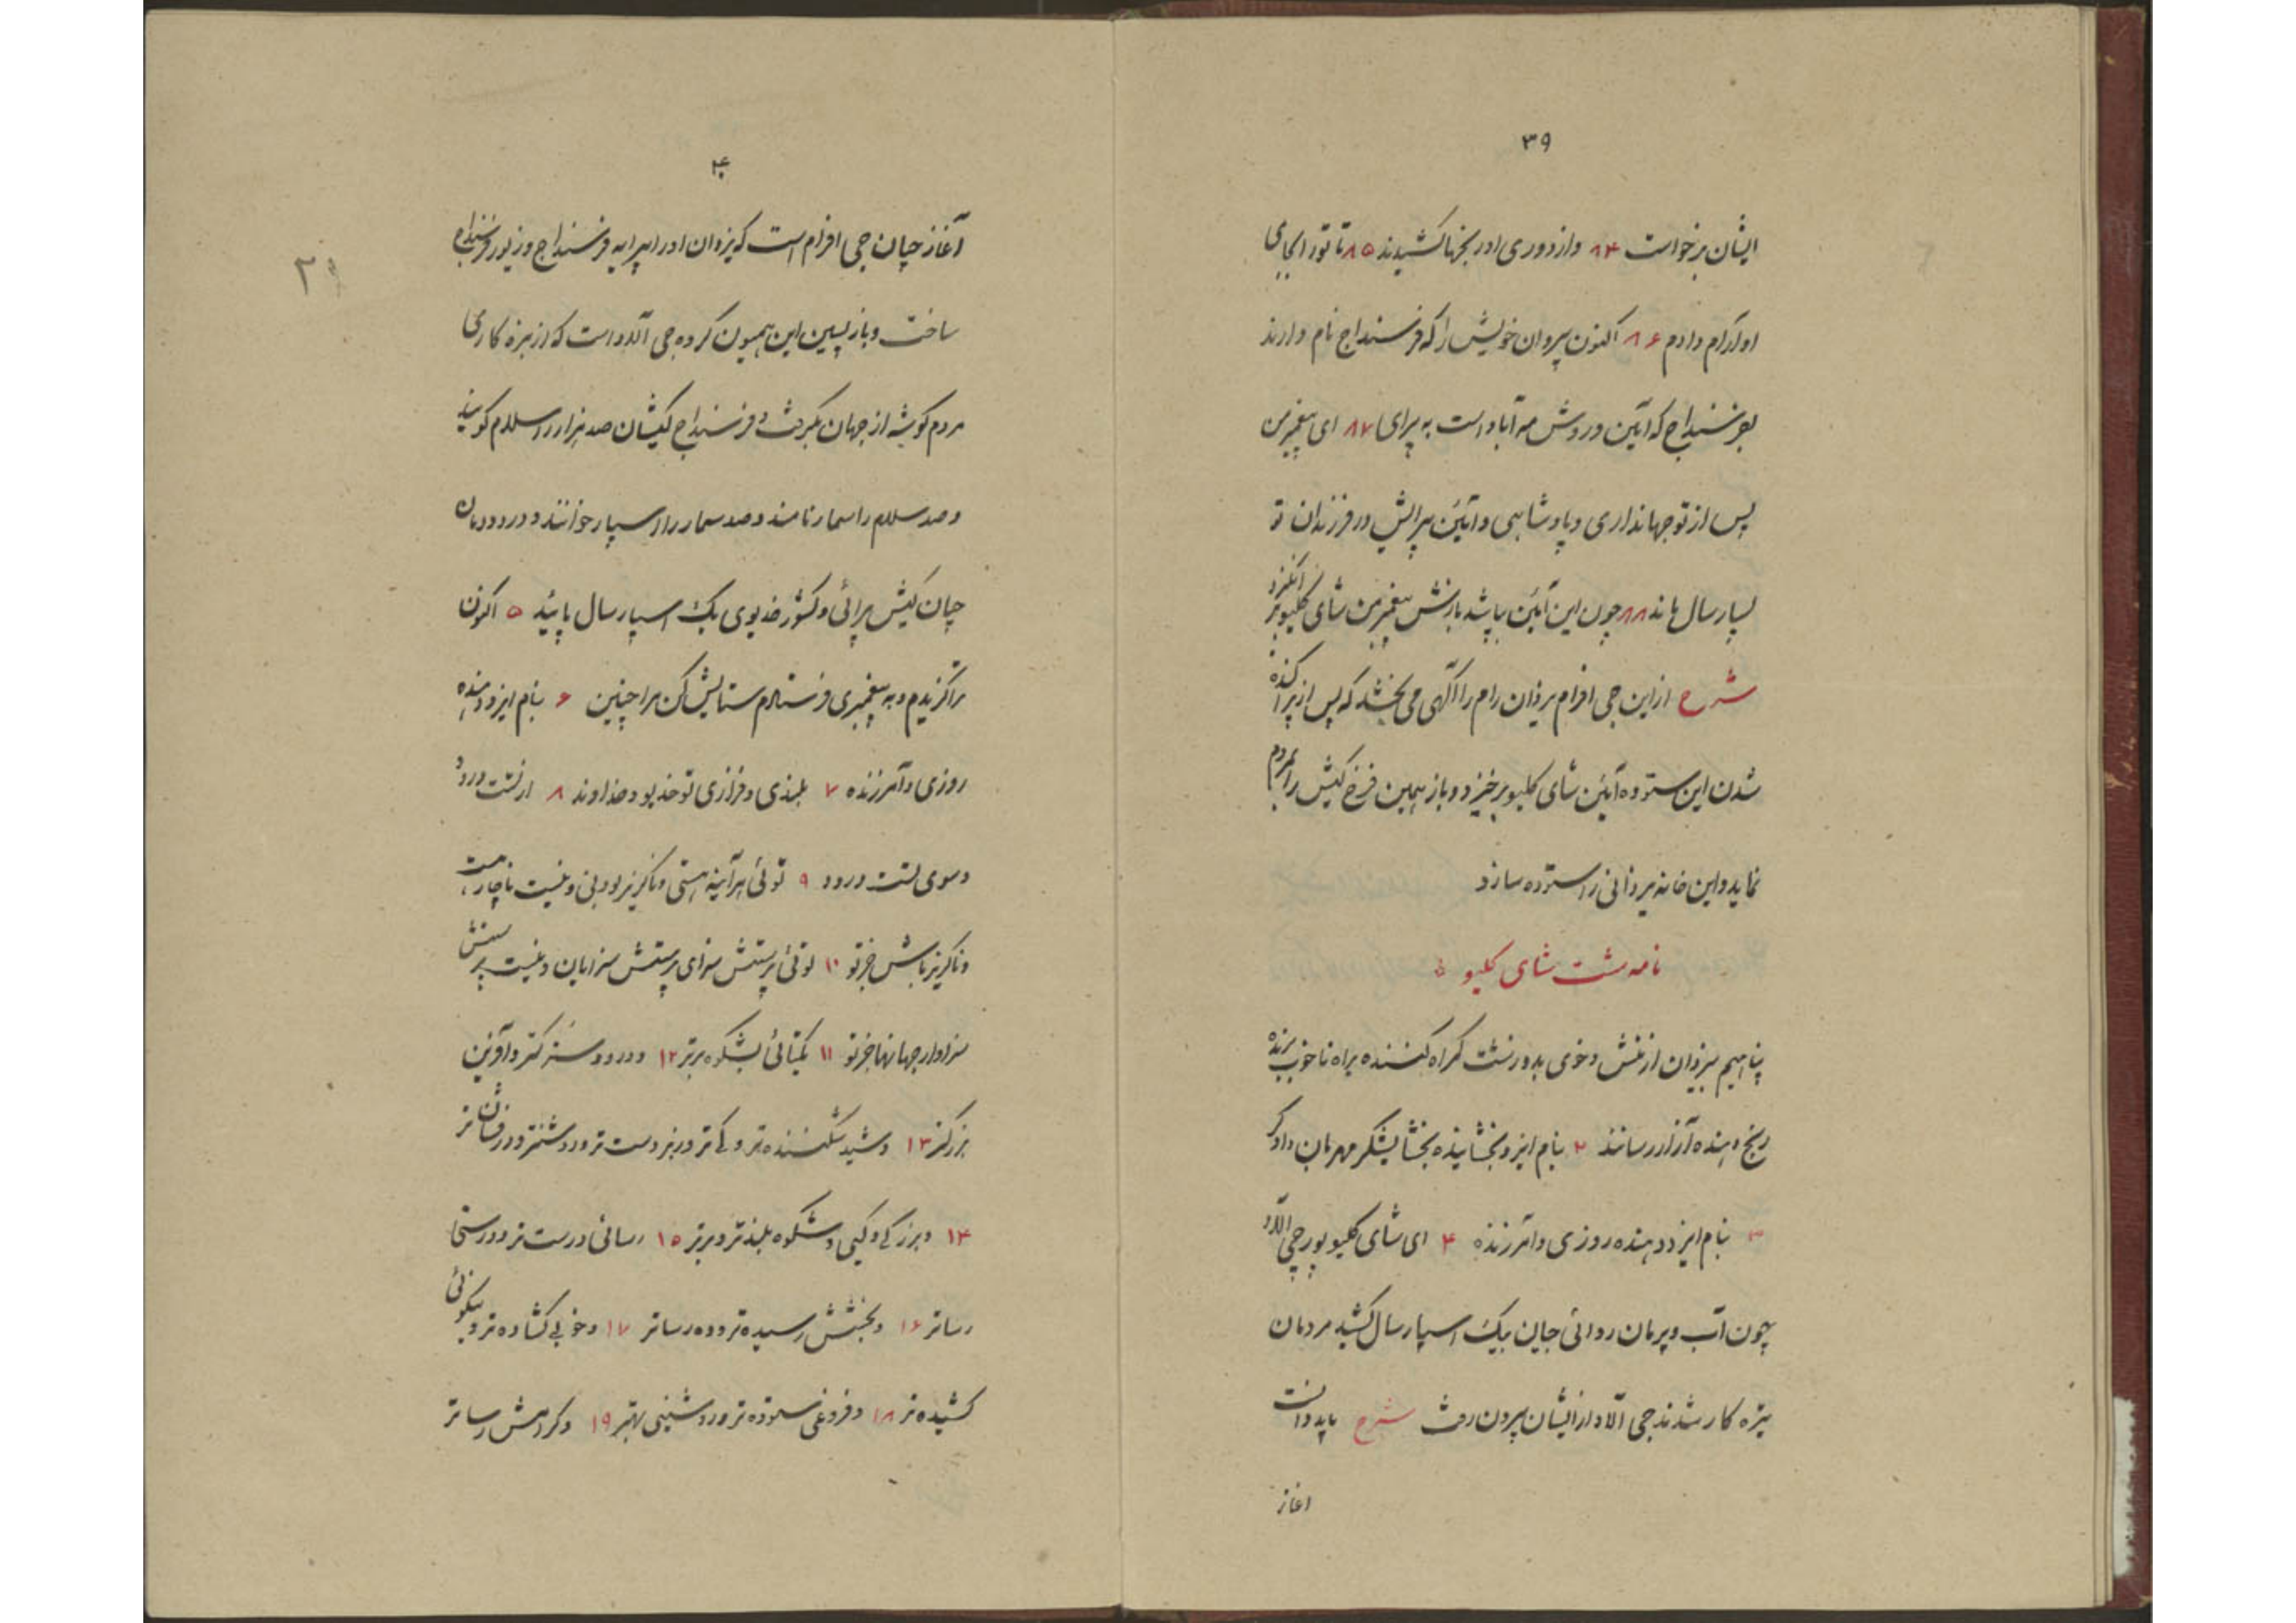 ۳۹
ایشان برخواست ۸۴ و از دوری او رنجها کشیدند ۸۵ تا تو را بجای
او آرام دادم ۸۶ اکنون پیروان خویش را که فرسنداج نام دارند
بفرسنداج که آئین و روش مه آباد است به پرای ۸۷ ای پیغمبر من
پس از تو جهانداری و پادشاهی و آئین پیرایش در فرزندان تو
اسپار سال ماند ۸۸ چون این آئین بپاشد بازش پیغمبر من شای کلیو بر انگیزد
شرح از این جی افرام یزدان رام را آگهی می بخشد که پس از پراکنده
شدن این ستوده آئین شای کلیو برخیزد و باز همین فرخ کیش را بمردم
نماید و این خانه یزدانی را ستوده سازد
نامه شت شای کلیو
پناهیم بیزدان از منش و خوی بد و زشت گمراه کننده براه ناخوب برنده
رنج دهنده آزار رساننده ۲ بنام ایزد بخشاینده بخشایشگر مهربان دادگر
۳ بنام ایزد دهنده روزی و آمرزنده ۴ ای شای کلیو پور جی آلاد
چون آب و پرمان روائی جیان بیک اسپار سال کشید مردمان
بزه کار شدند جی آلاد از ایشان بیرون رفت شرح باید دانست
اغاز
۴۰
۲۹
آغاز جیان جی افرام است که یزدان او را پیرایه فرسنداج و زیور فرسنداج
ساخت و باز پسین این همیون گروه جی آلاد است که از بزه کاری
مردم گوشه از جهان بگرفت و فرسنداج کیشان صد هزار را سلام گویند
و صد سلام را سمار نامند و صد سمار را اسپار خوانند و در دودمان
جیان کیش پرائی و کشور خدیوی یک اسپار سال پائید ۵ اکنون
ترا گزیدم و به پیغمبری فرستادم ستایش کن مرا چنین ۶ بنام ایزد دهنده
روزی و آمرزنده ۷ بلندی و فرازی تو خدیو و خداوند ۸ از تست درود
و سوی تست درود ۹ توئی هر آینه هستی و ناگزیر بودنی و نیست ناچار هست
و ناگزیر باش جز تو ۱۰ توئی پرستش سزای پرستش سزایان و نیست پرستش
سزاوار جهانها جز تو ۱۱ یکتائی بشکوه برتر ۱۲ و درود سترگتر و آفرین
بزرگتر ۱۳ و شید شکننده تر و کی تر و زبردست تر و روشنتر و درفشان تر
۱۴ و بزرگی و کیی و شکوه بلندتر و برتر ۱۵ رسائی درست تر و درستی
رساتر ۱۶ و بخشش رسیده تر و ده رساتر ۱۷ و خوبی گشاده تر و نیکوئی
کشیده تر ۱۸ و فروغی ستوده تر و روشنی بهتر ۱۹ و گردهش رساتر